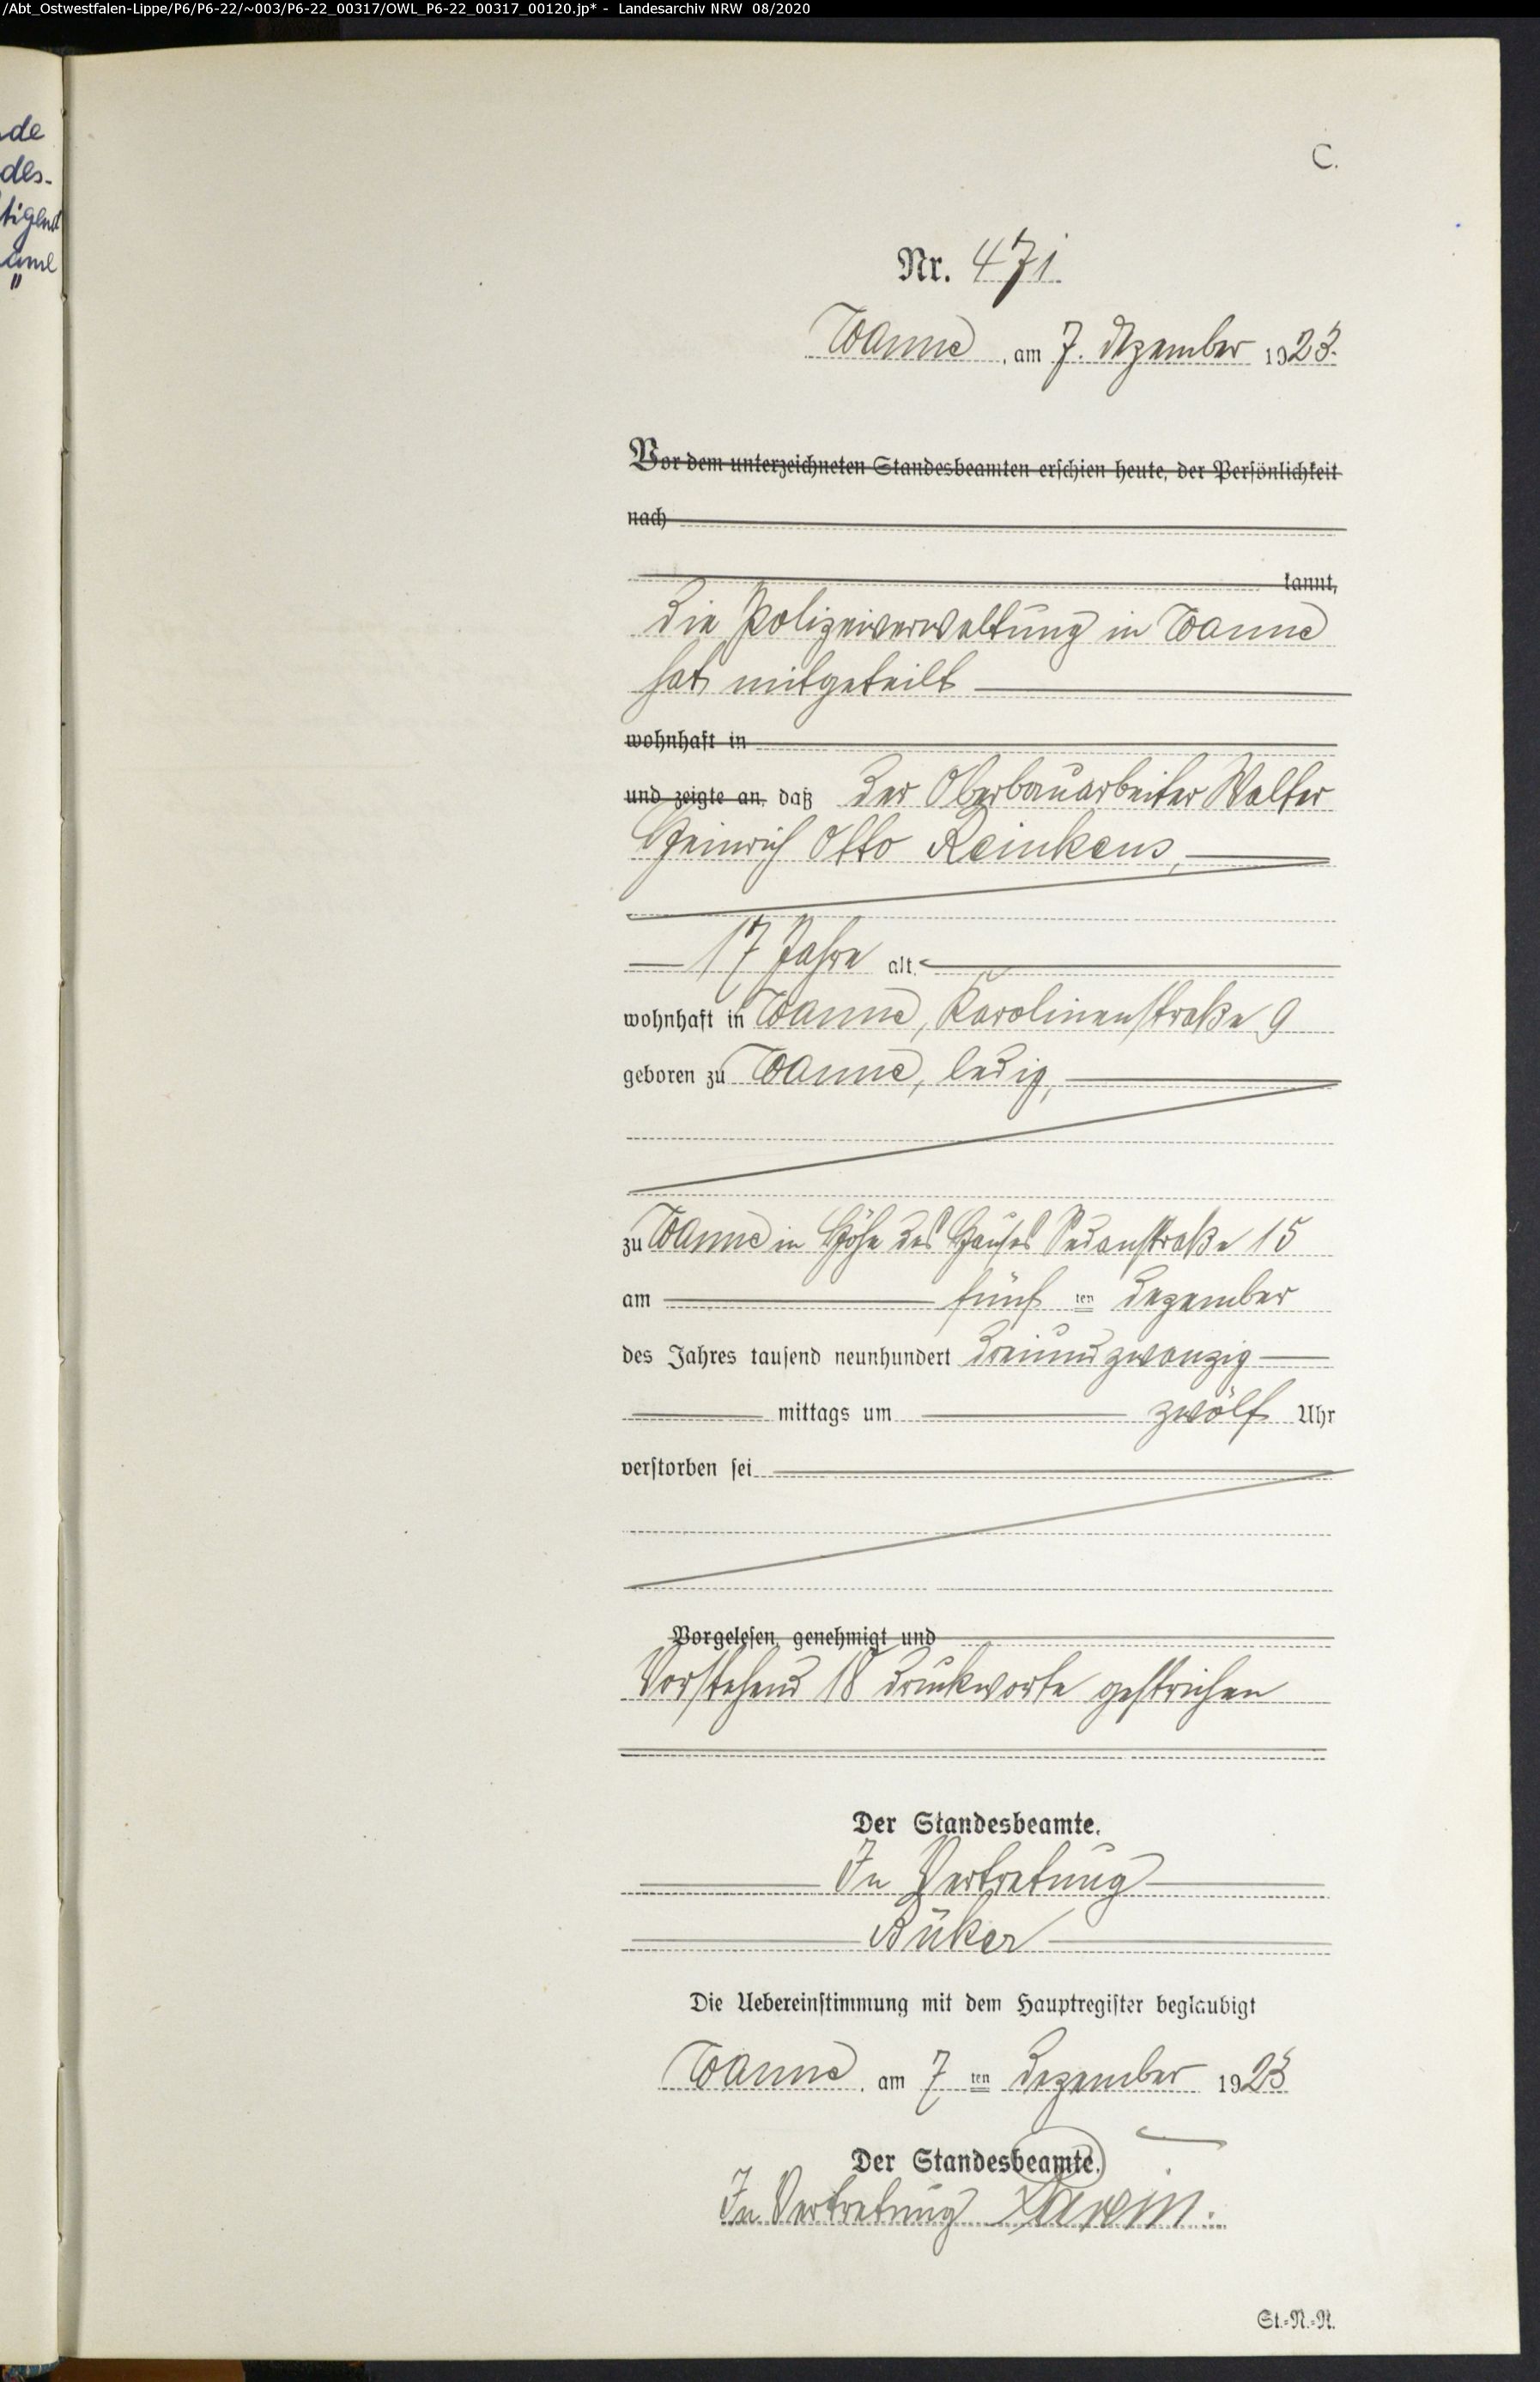 /Abt_Ostwestfalen-Lippe/P6/P6-22/~003/P6-22_00317/OWL_P6-22_00317_00120.jp* - Landesarchiv NRW 08/2020
de
des-
tigend
C.
Nr. 471
Wanne, am 7. Dezember 1923.
Vor dem unterzeichneten Standesbeamten erschien heute, der Persönlichkeit
nach
kannt,
Die Polizeiverwaltung in Wanne
hat mitgeteilt
wohnhaft in
und zeigte an, daß der Oberbauarbeiter Walter
Heinrich Otto Reinkens,
17 Jahre alt,
wohnhaft in Wanne, Karolinenstraße 9
geboren zu Wanne, ledig,
zu Wanne in Höhe des Hauses Sedanstraße 15
am fünf ten Dezember
des Jahres tausend neunhundert dreiundzwanzig
mittags um zwölf Uhr
verstorben sei
Vorgelesen, genehmigt und
Vorstehend 18 Druckworte gestrichen
Der Standesbeamte.
In Vertretung
Büker
Die Uebereinstimmung mit dem Hauptregister beglaubigt
Wanne, am 7 ten Dezember 1923
Der Standesbeamte.
In Vertretung
St.-N.-N.